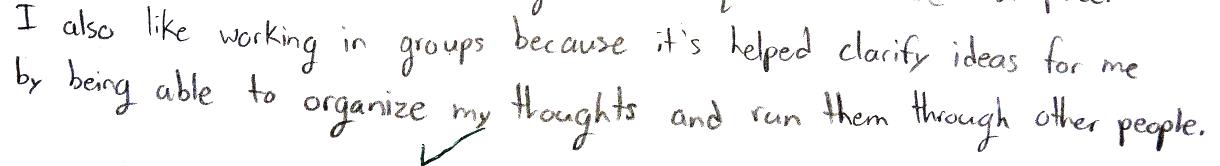 I also like working in groups because it's helped clarify ideas for me
by being able to organize my thoughts and run them through other people.